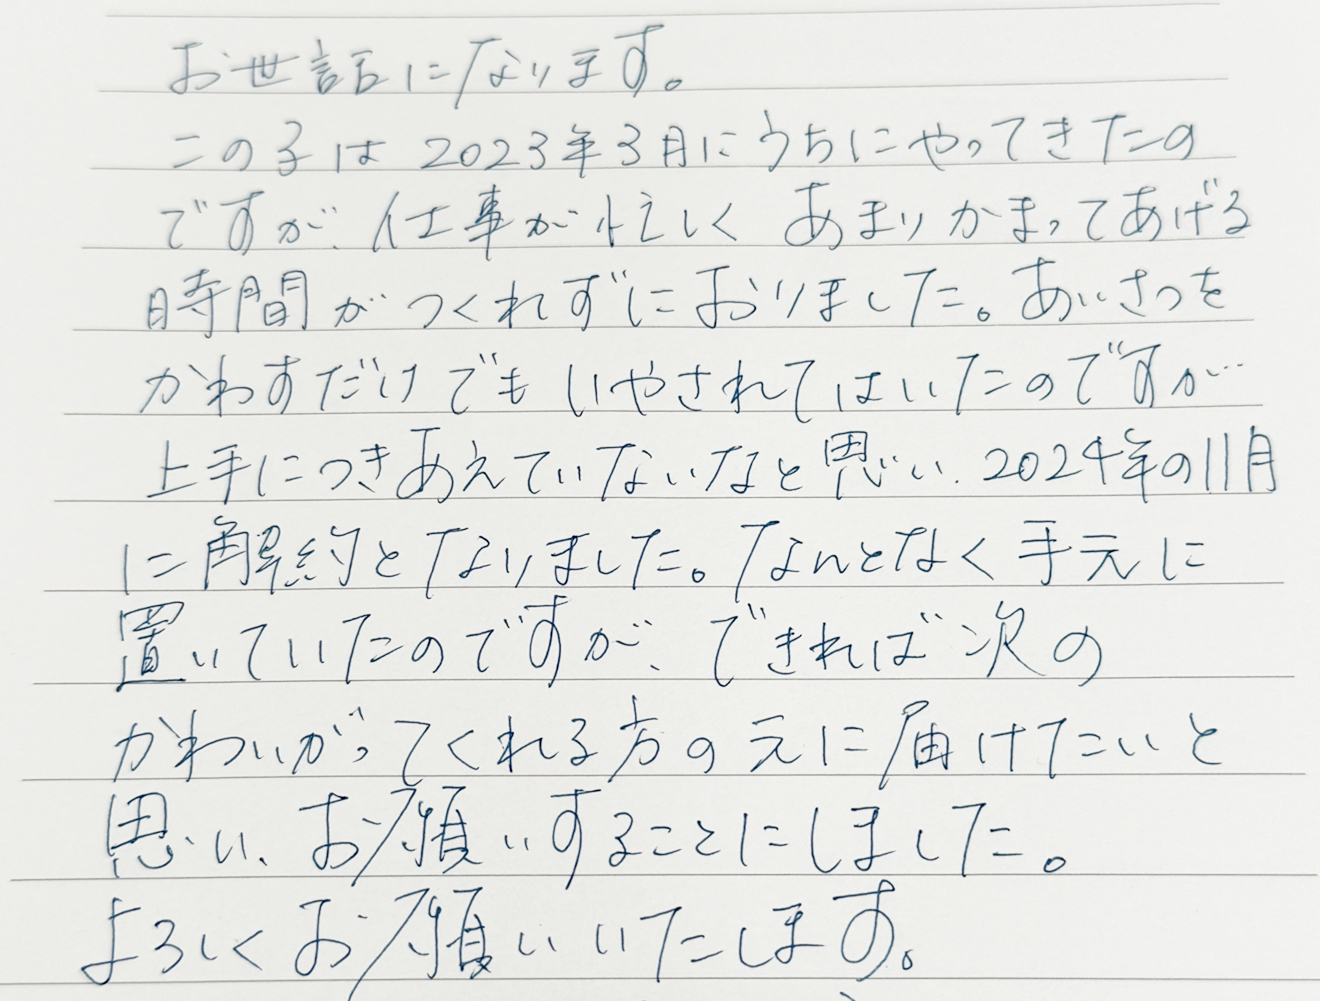 お世話になります。
この子は2023年3月にうちにやってきたの
ですが、仕事が忙しく あまりかまってあげる
時間がつくれずにおりました。あいさつを
かわすだけでもいやされてはいたのですが…
上手につきあえていないなと思い、2024年の11月
に解約となりました。なんとなく手元に
置いていたのですが、できれば次の
かわいがってくれる方の元に届けたいと
思い、お願いすることにしました。
よろしくお願いいたします。